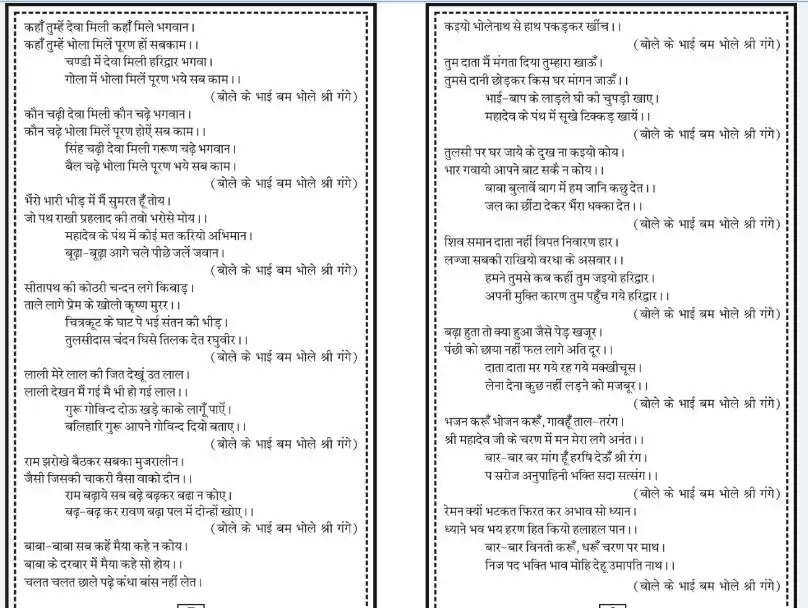 कहाँ तुम्हें देवा मिली कहाँ मिले भगवान।
कहाँ तुम्हें भोला मिलें पूरण हों सबकाम।।
चण्डी में देवा मिली हरिद्वार भगवा।
गोला में भोला मिलें पूरण भये सब काम।।
(बोले के भाई बम भोले श्री गंगे)
कौन चढ़ी देवा मिली कौन चढ़े भगवान।
कौन चढ़े भोला मिलें पूरण होऐं सब काम।।
सिंह चढ़ी देवा मिली गरूण चढ़े भगवान।
बैल चढ़े भोला मिले पूरण भये सब काम।
(बोले के भाई बम भोले श्री गंगे)
भैंरो भारी भीड़ में मैं सुमरत हूँ तोय।
जो पथ राखी प्रहलाद की तवो भरोसे मोय।।
महादेव के पंथ में कोई मत करियो अभिमान।
बूढ़ा-बूढ़ा आगे चले पीछे जलें जवान।
(बोले के भाई बम भोले श्री गंगे)
सीतापथ की कोठरी चन्दन लगे किबाड़।
ताले लागे प्रेम के खोलो कृष्ण मुरर।।
चित्रकूट के घाट पे भई संतन की भीड़।
तुलसीदास चंदन घिसे तिलक देत रघुवीर।।
(बोले के भाई बम भोले श्री गंगे)
लाली मेरे लाल की जित देखूं उत लाल।
लाली देखन मैं गई मै भी हो गई लाल।।
गुरू गोविन्द दोऊ खड़े काके लागूँ पाऐं।
बलिहारि गुरू आपने गोविन्द दियो बताए।।
(बोले के भाई बम भोले श्री गंगे)
राम झरोखे बैठकर सबका मुजरालीन।
जैसी जिसकी चाकरी वैसा वाको दीन।।
राम बढ़ाये सब बढ़े बढ़कर बढा न कोए।
बढ़-बढ़ कर रावण बढ़ा पल में दीन्हों खोए।।
(बोले के भाई बम भोले श्री गंगे)
बाबा-बाबा सब कहें मैया कहे न कोय।
बाबा के दरबार में मैया कहे सो होय।।
चलत चलत छाले पढ़े कंधा बांस नहीं लेत।
कइयो भोलेनाथ से हाथ पकड़कर खींच।।
(बोले के भाई बम भोले श्री गंगे)
तुम दाता मैं मंगता दिया तुम्हारा खाऊँ।
तुमसे दानी छोड़कर किस घर मांगन जाऊँ।।
भाई-बाप के लाड़ले घी की चुपड़ी खाए।
महादेव के पंथ में सूखे टिक्कड़ खायें।।
(बोले के भाई बम भोले श्री गंगे)
तुलसी पर घर जाये के दुख ना कइयो कोय।
भार गवायो आपने बाट सकै न कोय।।
बाबा बुलावें बाग में हम जानि कछु देत।।
जल का छींटा देकर भैंरा धक्का देत।।
(बोले के भाई बम भोले श्री गंगे)
शिव समान दाता नहीं विपत निवारण हार।
लज्जा सबकी राखियो वरधा के असवार।।
हमने तुमसे कब कहीं तुम जइयो हरिद्वार।
अपनी मुक्ति कारण तुम पहुँच गये हरिद्वार।।
(बोले के भाई बम भोले श्री गंगे)
बढ़ा हुता तो क्या हुआ जैसे पेड़ खजूर।
पंछी को छाया नहीं फल लागे अति दूर।।
दाता दाता मर गये रह गये मक्खीचूस।
लेना देना कुछ नहीं लड़ने को मजबूर।।
(बोले के भाई बम भोले श्री गंगे)
भजन करूँ भोजन करूँ, गावहूँ ताल-तरंग।
श्री महादेव जी के चरण में मन मेरा लगे अनंत।।
बार-बार बर मांग हूँ हरषि देऊँ श्री रंग।
प सरोज अनुपाहिनी भक्ति सदा सत्संग।।
(बोले के भाई बम भोले श्री गंगे)
रेमन क्यों भटकत फिरत कर अभाव सो ध्यान।
ध्याने भव भय हरण हित कियो हलाहल पान।।
बार-बार विनती करूँ, धरूँ चरण पर माथ।
निज पद भक्ति भाव मोहि देहू उमापति नाथ।।
(बोले के भाई बम भोले श्री गंगे)